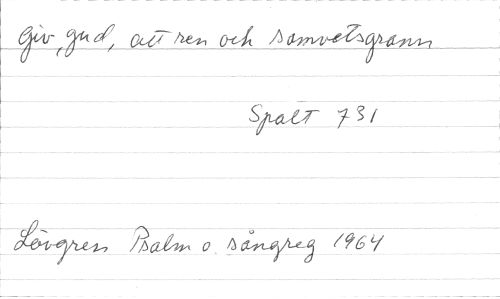 Giv, gud, att ren och samvetsgrann
Spalt 731
Lövgren Psalm o. sångreg 1964